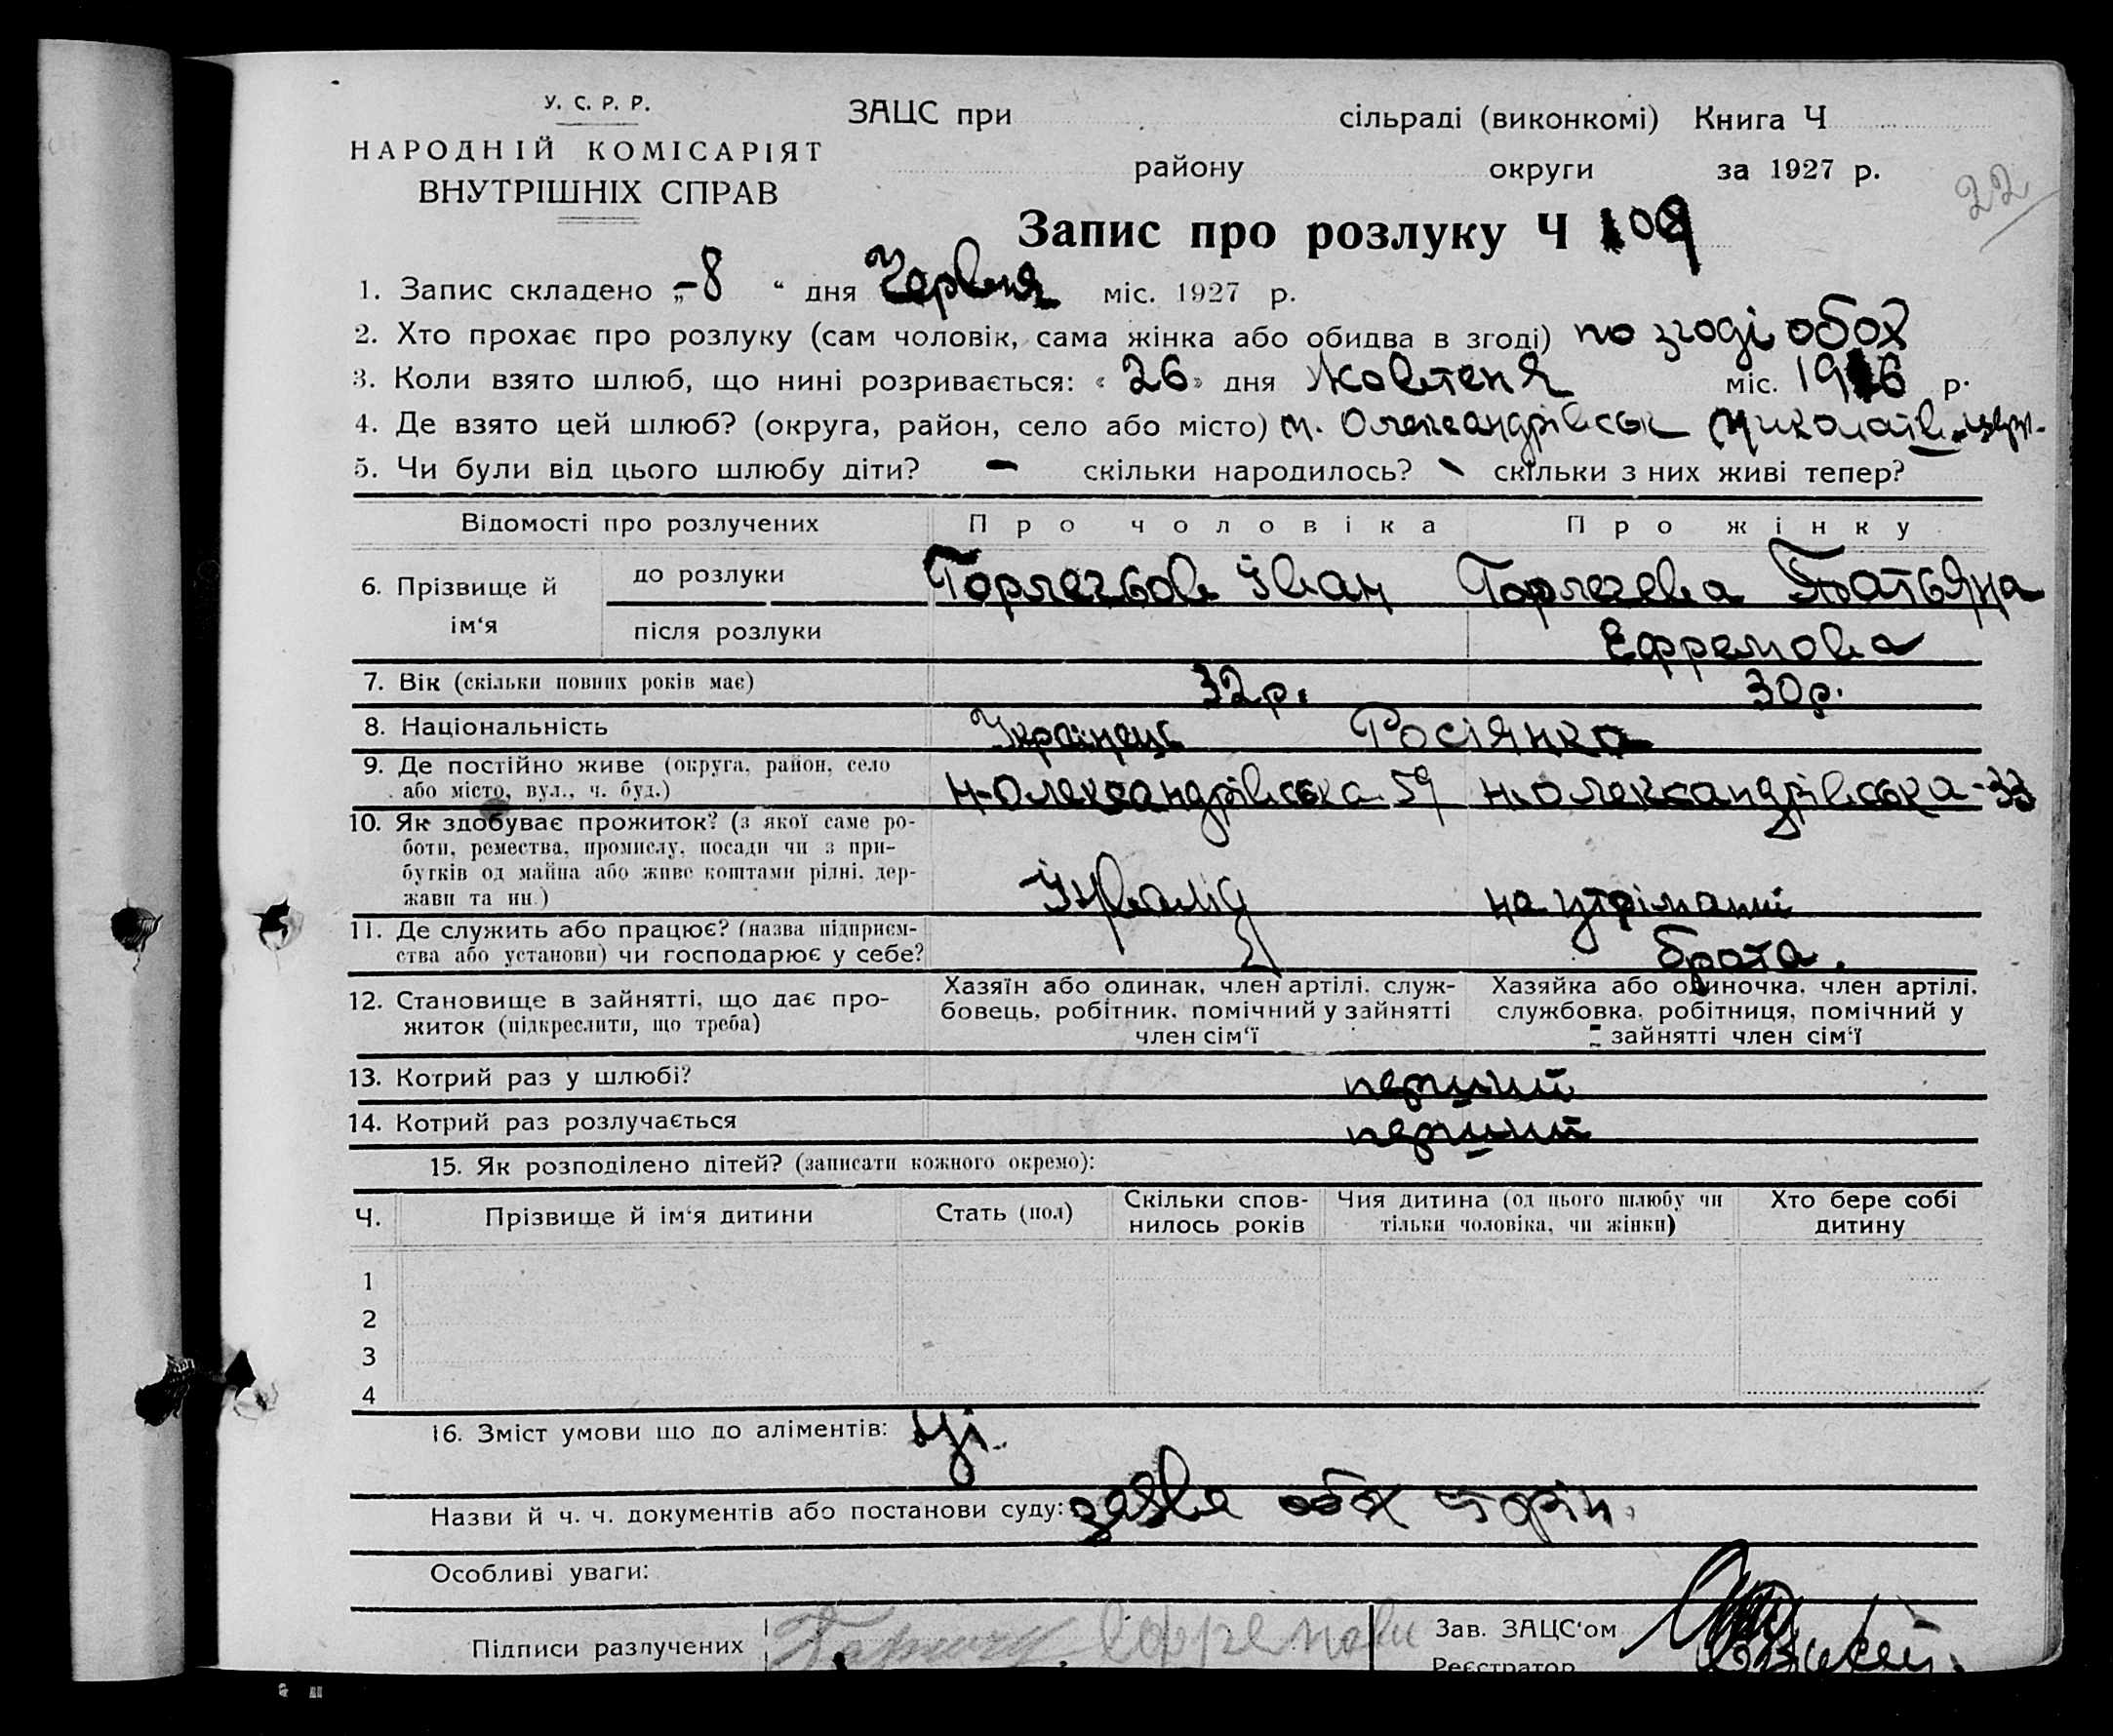 У. С. Р. Р.
НАРОДНІЙ КОМІСАРІЯТ
ВНУТРІШНІХ СПРАВ
ЗАЦС при сільраді (виконкомі) Книга Ч
району округи за 1927 р.
22
Запис про розлуку Ч 109
1. Запис складено „-8 “ дня Червня міс. 1927 р.
2. Хто прохає про розлуку (сам чоловік, сама жінка або обидва в згоді) по згоді обох
3. Коли взято шлюб, що нині розривається: « 26 » дня Жовтеня міс. 1916 р.
4. Де взято цей шлюб? (округа, район, село або місто) м. Олександрівськ Миколаїв. церк.
5. Чи були від цього шлюбу діти? - скільки народилось? - скільки з них живі тепер?
Відомості про розлучених Про чоловіка Про жінку
6. Прізвище й ім‘я
до розлуки Іван Татьяна
після розлуки Ефремова
7. Вік (скільки повних років має) 32 р. 30 р.
8. Національність Українець Росіянка
9. Де постійно живе (округа, район, село або місто, вул., ч. буд.) Н-Олександрівська 59 Н-Олександрівська-33
10. Як здобуває прожиток? (з якої саме ро-
боти, ремества, промислу, посади чи з при-
бутків од майна або живе коштами рідні, дер-
жави та ин.) Інвалід на утріманні
11. Де служить або працює? (назва підприєм-
ства або установи) чи господарює у себе? брата.
12. Становище в зайнятті, що дає про-
житок (підкреслити, що треба)
Хазяїн або одинак, член артілі, служ-
бовець, робітник, помічний у зайнятті
член сім‘ї
Хазяйка або одиночка, член артілі,
службовка, робітниця, помічний у
зайнятті член сім‘ї
13. Котрий раз у шлюбі? перший
14. Котрий раз розлучається перший
15. Як розподілено дітей? (записати кожного окремо):
Ч. Прізвище й ім‘я дитини Стать (пол) Скільки спов-
нилось років Чия дитина (од цього шлюбу чи
тільки чоловіка, чи жінки) Хто бере собі
дитину
1
2
3
4
16. Зміст умови що до аліментів: Ні.
Назви й ч. ч. документів або постанови суду: заява обох сторін.
Особливі уваги:
Підписи разлучених Ефремова Зав. ЗАЦС'ом
Реєстратор